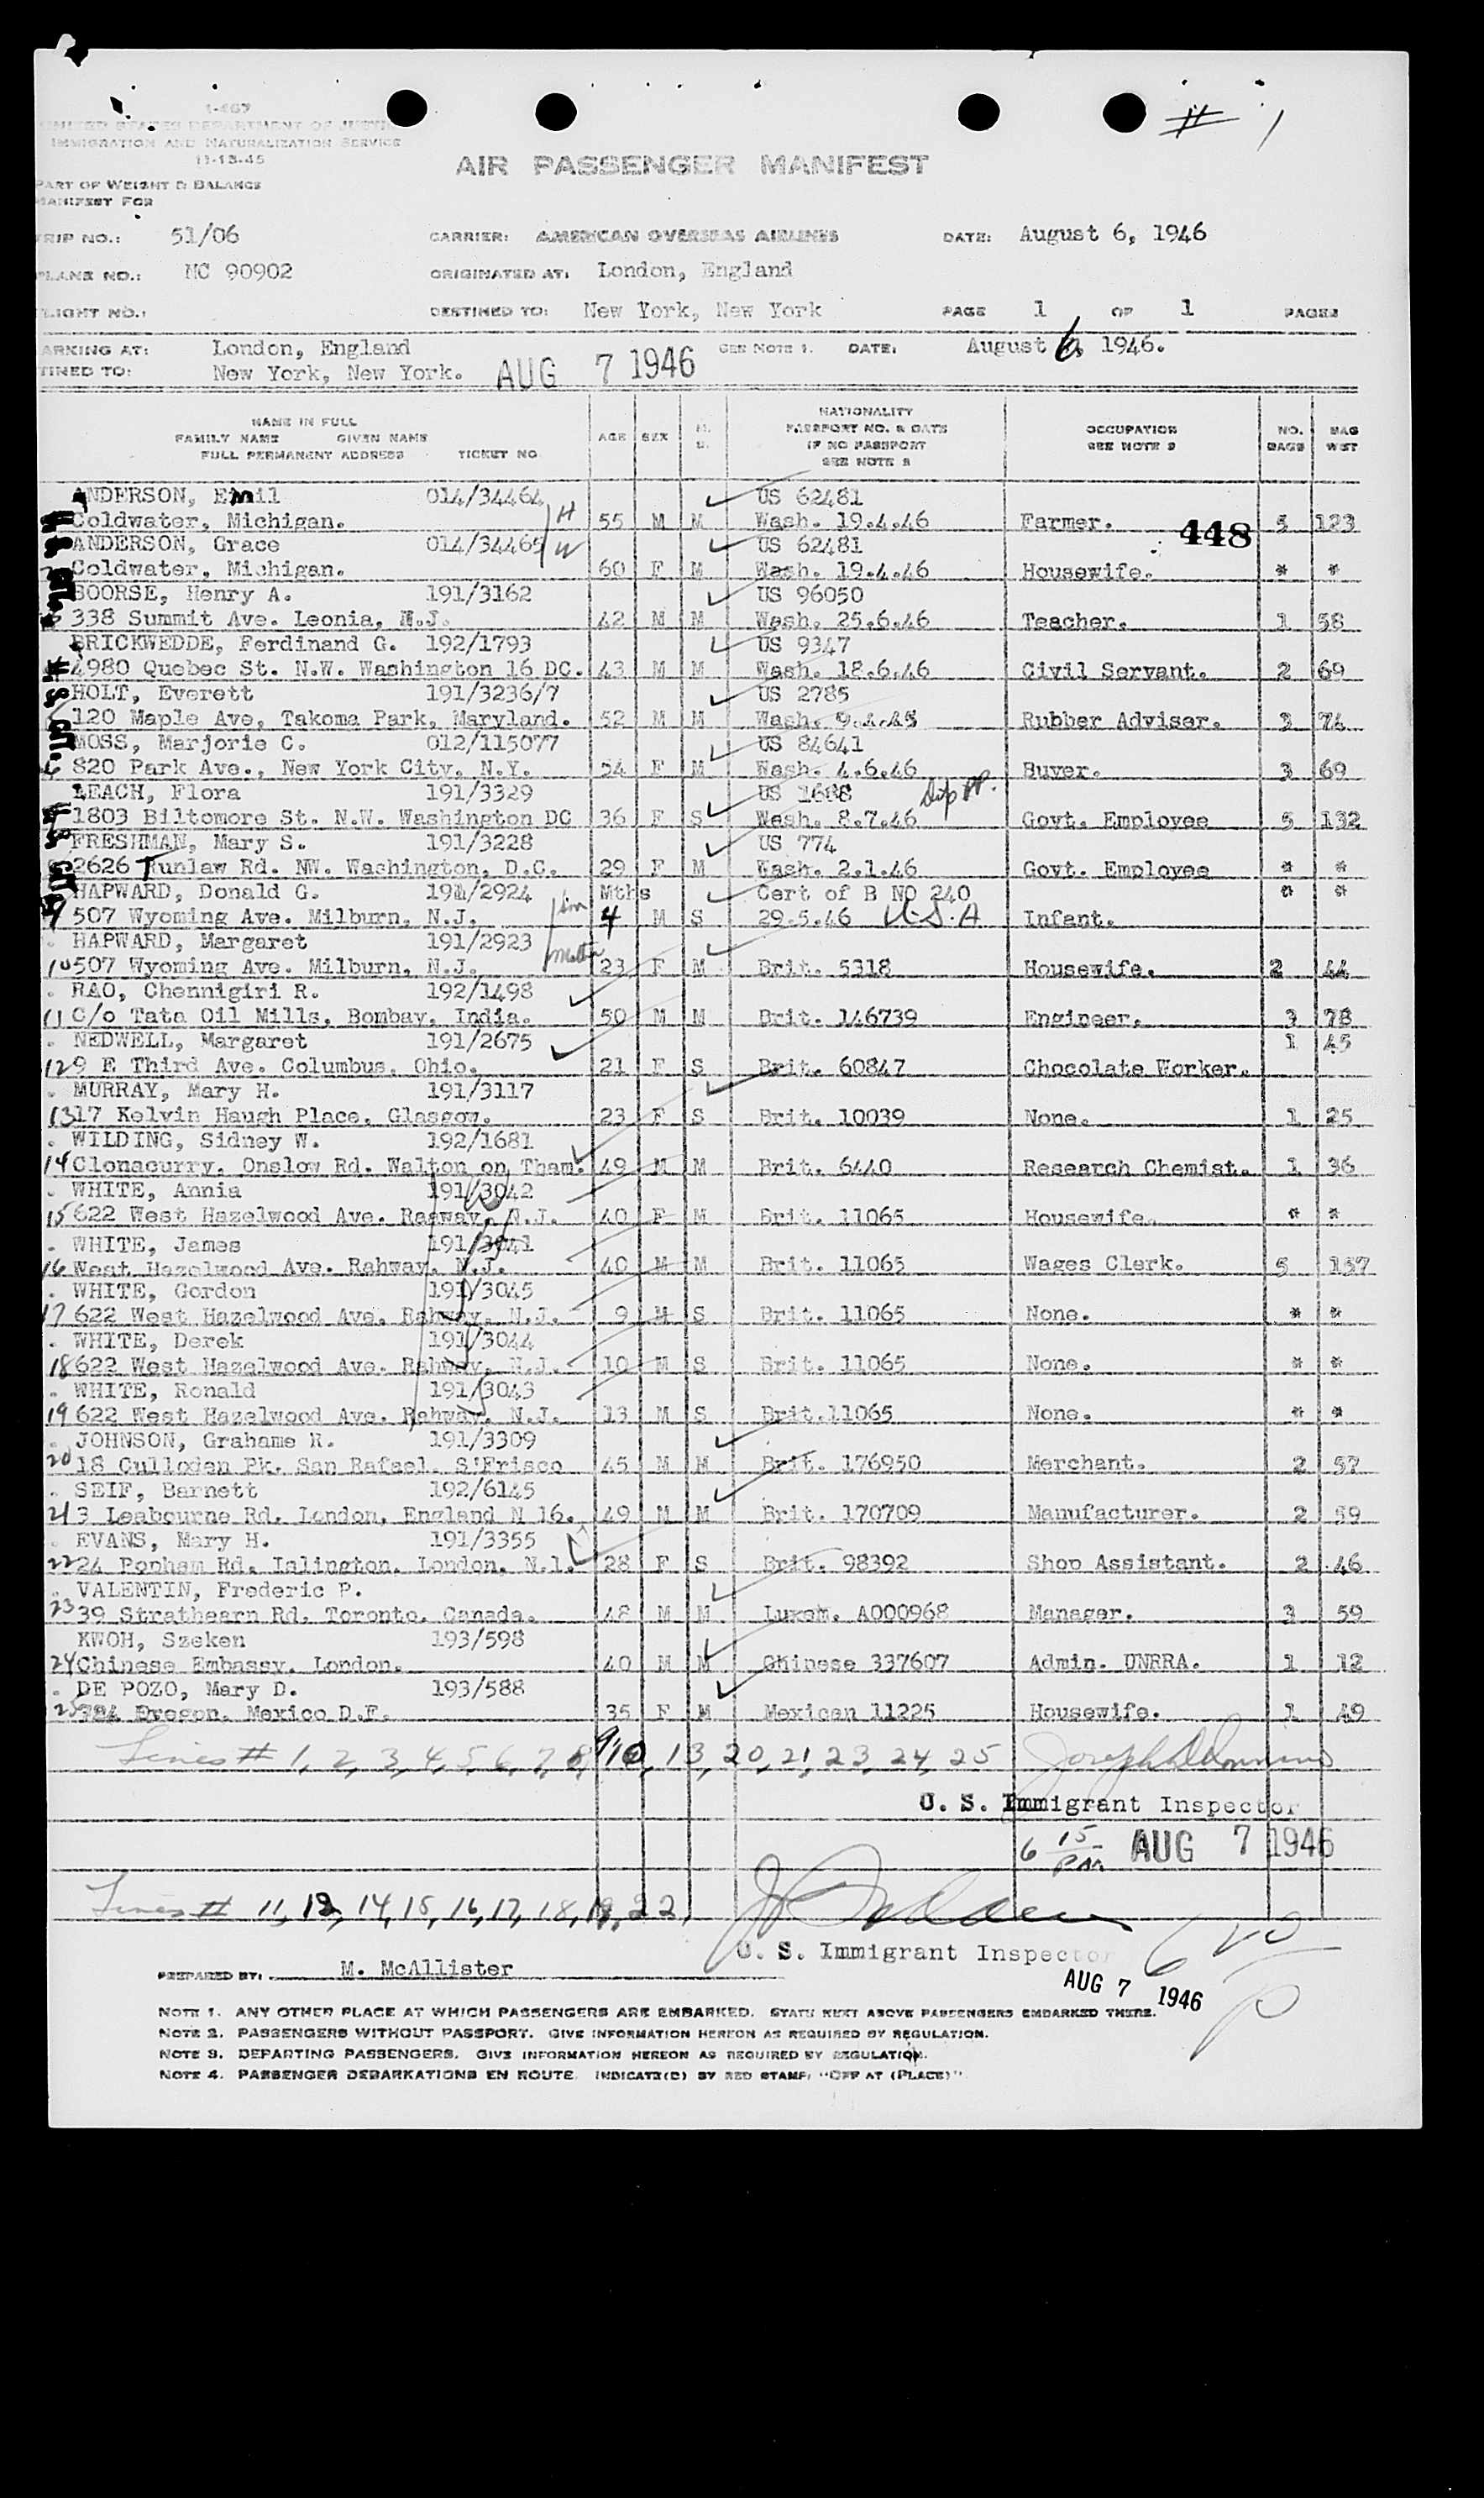 # 1
1-467
UNITED STATES DEPARTMENT OF JUSTICE
IMMIGRATION AND NATURALIZATION SERVICE
11-15-45
AIR PASSENGER MANIFEST
PART OF WEIGHT & BALANCE
MANIFEST FOR
TRIP NO.: 51/06 CARRIER: AMERICAN OVERSEAS AIRLINES DATE: August 6, 1946
PLANE NO.: NC 90902 ORIGINATED AT: London, England
FLIGHT NO.: DESTINED TO: New York, New York PAGE 1 OF 1 PAGES
ARKING AT: London, England SEE NOTE 1. DATE: August 6, 1946.
TINED TO: New York, New York. AUG 7 1946
NAME IN FULL
FAMILY NAME GIVEN NAME
FULL PERMANENT ADDRESS TICKET NO AGE SEX M. S. NATIONALITY PASSPORT NO. & DATE IF NO PASSPORT SEE NOTE 2 OCCUPATION SEE NOTE 3 NO. BAGS BAG WGT
ANDERSON, Emil 014/34464 US 62481
Coldwater, Michigan. H 55 M M Wash. 19.4.46 Farmer. 448 5 123
ANDERSON, Grace 014/34465 W US 62481
Coldwater, Michigan. 60 F M Wash. 19.4.46 Housewife. * *
BOORSE, Henry A. 191/3162 US 96050
338 Summit Ave. Leonia, N.J. 42 M M Wash. 25.6.46 Teacher. 1 58
BRICKWEDDE, Ferdinand G. 192/1793 US 9347
4980 Quebec St. N.W. Washington 16 DC. 43 M M Wash. 18.6.46 Civil Servant. 2 69
HOLT, Everett 191/3236/7 US 2785
120 Maple Ave, Takoma Park, Maryland. 52 M M Wash. Rubber Adviser. 3 74
MOSS, Marjorie C. 012/115077 US 84641
6 820 Park Ave., New York City, N.Y. 54 F M Wash. 4.6.46 Buyer. 3 69
LEACH, Flora 191/3329 US 1688 Dip pp.
1803 Biltomore St. N.W. Washington DC 36 F S Wash. 8.7.46 Govt. Employee 5 132
FRESHMAN, Mary S. 191/3228 US 774
2626 Tunlaw Rd. NW. Washington, D.C. 29 F M Wash. 2.1.46 Govt. Employee * *
HAPWARD, Donald G. 191/2924 Mths Cert of B NO 240 * *
9 507 Wyoming Ave. Milburn, N.J. son 4 M S 29.5.46 U.S.A Infant.
. HAPWARD, Margaret 191/2923 mother
10 507 Wyoming Ave. Milburn, N.J. 23 F M Brit. 5318 Housewife. 2 44
. RAO, Chennigiri R. 192/1498
11 C/o Tata Oil Mills, Bombay, India. 50 M M Brit. 146739 Engineer. 3 78
. NEDWELL, Margaret 191/2675 1 45
12 9 E Third Ave. Columbus, Ohio. 21 F S Brit. 60847 Chocolate Worker.
. MURRAY, Mary H. 191/3117
13 17 Kelvin Haugh Place, Glasgow. 23 F S Brit. 10039 None. 1 25
. WILDING, Sidney W. 192/1681
14 Clonacurry, Onslow Rd. Walton on Tham. 49 M M Brit. 6440 Research Chemist. 1 36
. WHITE, Annia 191/3042
15 622 West Hazelwood Ave. Rahway, N.J. 40 F M Brit. 11065 Housewife. * *
. WHITE, James 191/3041
16 West Hazelwood Ave. Rahway, N.J. 40 M M Brit. 11065 Wages Clerk. 5 157
. WHITE, Gordon 191/3045
17 622 West Hazelwood Ave. Rahway, N.J. 9 M S Brit. 11065 None. * *
. WHITE, Derek 191/3044
18 622 West Hazelwood Ave. Rahway, N.J. 10 M S Brit. 11065 None. * *
. WHITE, Ronald 191/3043
19 622 West Hazelwood Ave. Rahway, N.J. 13 M S Brit.11065 None. * *
. JOHNSON, Grahame R. 191/3309
20 18 Culloden Pk. San Rafael. S'Frisco 45 M M Brit. 176950 Merchant. 2 57
. SEIF, Barnett 192/6145
21 3 Leabourne Rd. London, England N 16. 49 M M Brit. 170709 Manufacturer. 2 59
. EVANS, Mary H. 191/3355
22 24 Popham Rd. Islington, London, N.1. 28 F S Brit. 98392 Shop Assistant. 2 46
. VALENTIN, Frederic P.
23 39 Strathearn Rd. Toronto, Canada. 48 M M Luxem. A000968 Manager. 3 59
KWOH, Szeken 193/598
24 Chinese Embassy, London. 40 M M Chinese 337607 Admin. UNRRA. 1 12
. DE POZO, Mary D. 193/588
25 Oregon, Mexico D.F. 35 F M Mexican 11225 Housewife. 1 49
Lines # 1, 2, 3, 4, 5, 6, 7, 8, 9, 10, 13, 20, 21, 23, 24, 25
U. S. Immigrant Inspector
6 15 P.M. AUG 7 1946
Lines # 11, 12, 14, 15, 16, 17, 18, 19, 22,
U. S. Immigrant Inspector
AUG 7 1946
PREPARED BY: M. McAllister
NOTE 1. ANY OTHER PLACE AT WHICH PASSENGERS ARE EMBARKED. STATE NEXT ABOVE PASSENGERS EMBARKED THERE.
NOTE 2. PASSENGERS WITHOUT PASSPORT. GIVE INFORMATION HEREON AS REQUIRED BY REGULATION.
NOTE 3. DEPARTING PASSENGERS. GIVE INFORMATION HEREON AS REQUIRED BY REGULATION.
NOTE 4. PASSENGER DEBARKATIONS EN ROUTE. INDICATE(D) BY RED STAMP: "OFF AT (PLACE)".